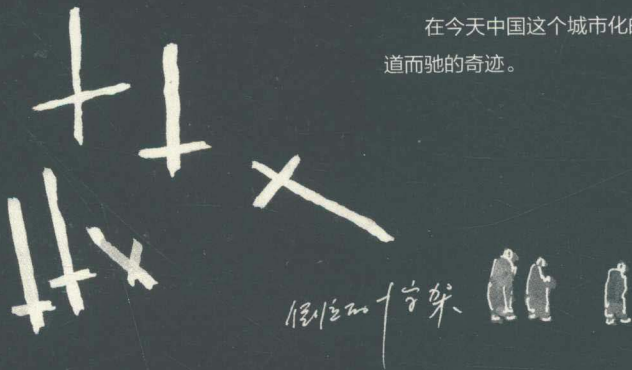 在今天中国这个城市化
道而驰的奇迹。
倒立的十字架